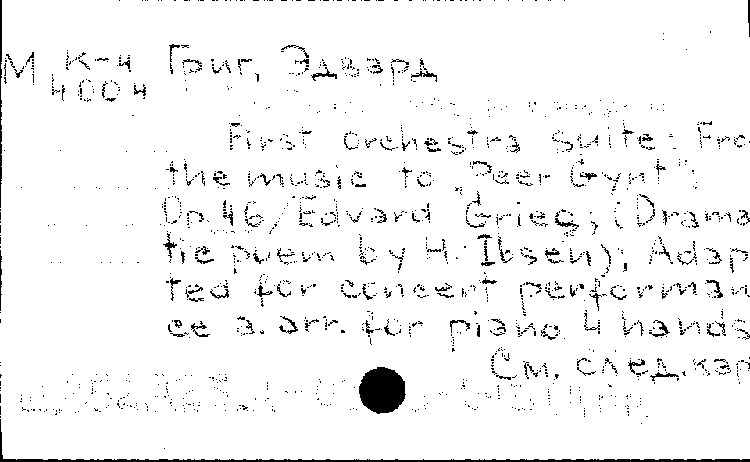 М К-4 Григ, Эдвард
4004
First orchestra suite: Fro
the music to "Peer Gynt";
Op.46/Edvard Grieg; (Drama
tic poem by H. Ibsen); Adap
ted for concert performan
ce a. arr. for piano 4 hands
См. след. кар